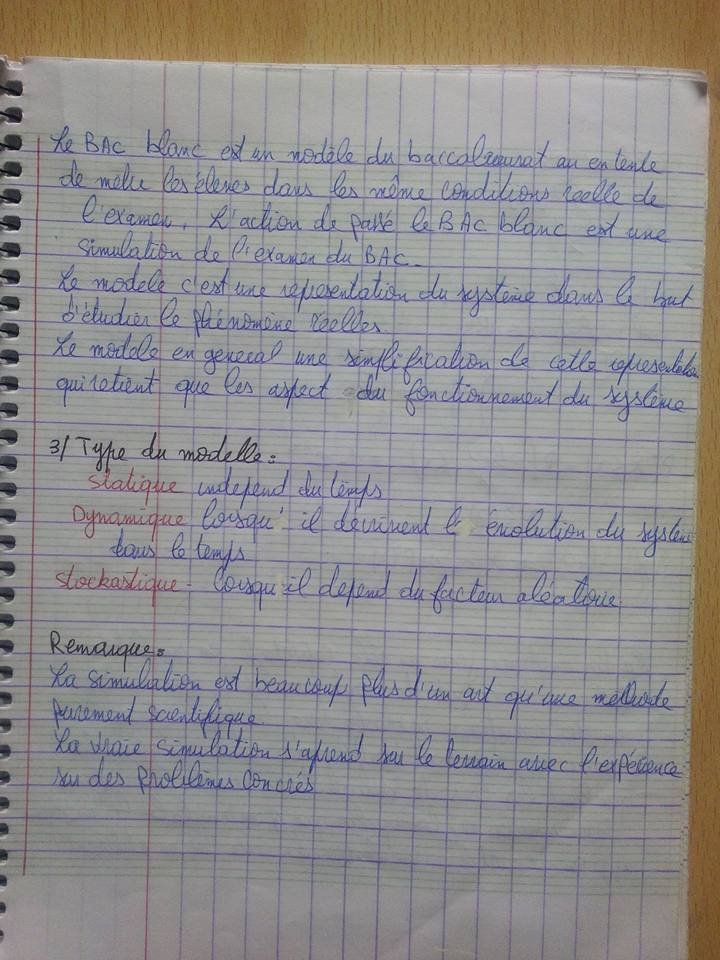 Le BAC blanc est un modèle du baccalaureat au en tente
de mètre les élèves dans les même conditions réelle de
l'examen. L'action de passé le BAC blanc est une
simulation de l'examen du BAC.
Le modele c'est une représentation du système dans le but
d'étudier le phénomène réelles
Le modele en general une simplification de cette representation
qui retient que les aspect du fonctionnement du système
3/ Type du modelle:
Statique independ du temps
Dynamique lorsqu'il devinent l' évolution du système
dans le temps
Stockastique - lorsqu'il depend du facteur aléatoire.
Remarque:
La simulation est beaucoup plus d'un art qu'une méthode
purement scientifique
La vraie simulation s'aprend sur le terrain avec l'expérience
sur des problèmes concrés